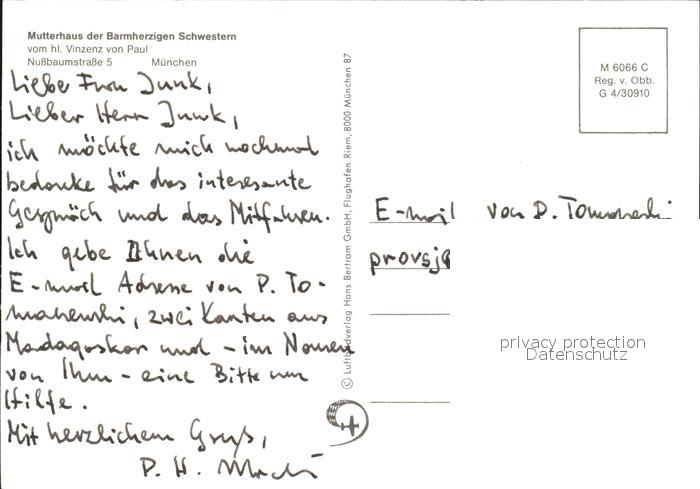 Mutterhaus der Barmherzigen Schwestern
vom hl. Vinzenz von Paul
Nußbaumstraße 5 München
Liebe Frau Junk,
Lieber Herr Junk,
ich möchte mich nochmal
bedanke für das interesante
Gespräch und das Mitfahren.
Ich gebe Ihnen die
E-mail Adresse von P. To-
maherski, zwei Karten aus
Madagaskar und - im Namen
von Ihm - eine Bitte um
Hilfe.
Mit herzlichem Gruß,
P. H.
© Luftbildverlag Hans Bertram GmbH, Flughafen Riem, 8000 München 87
M 6066 C
Reg. v. Obb.
G 4/30910
E-mail von D.
provsj
privacy protection
Datenschutz